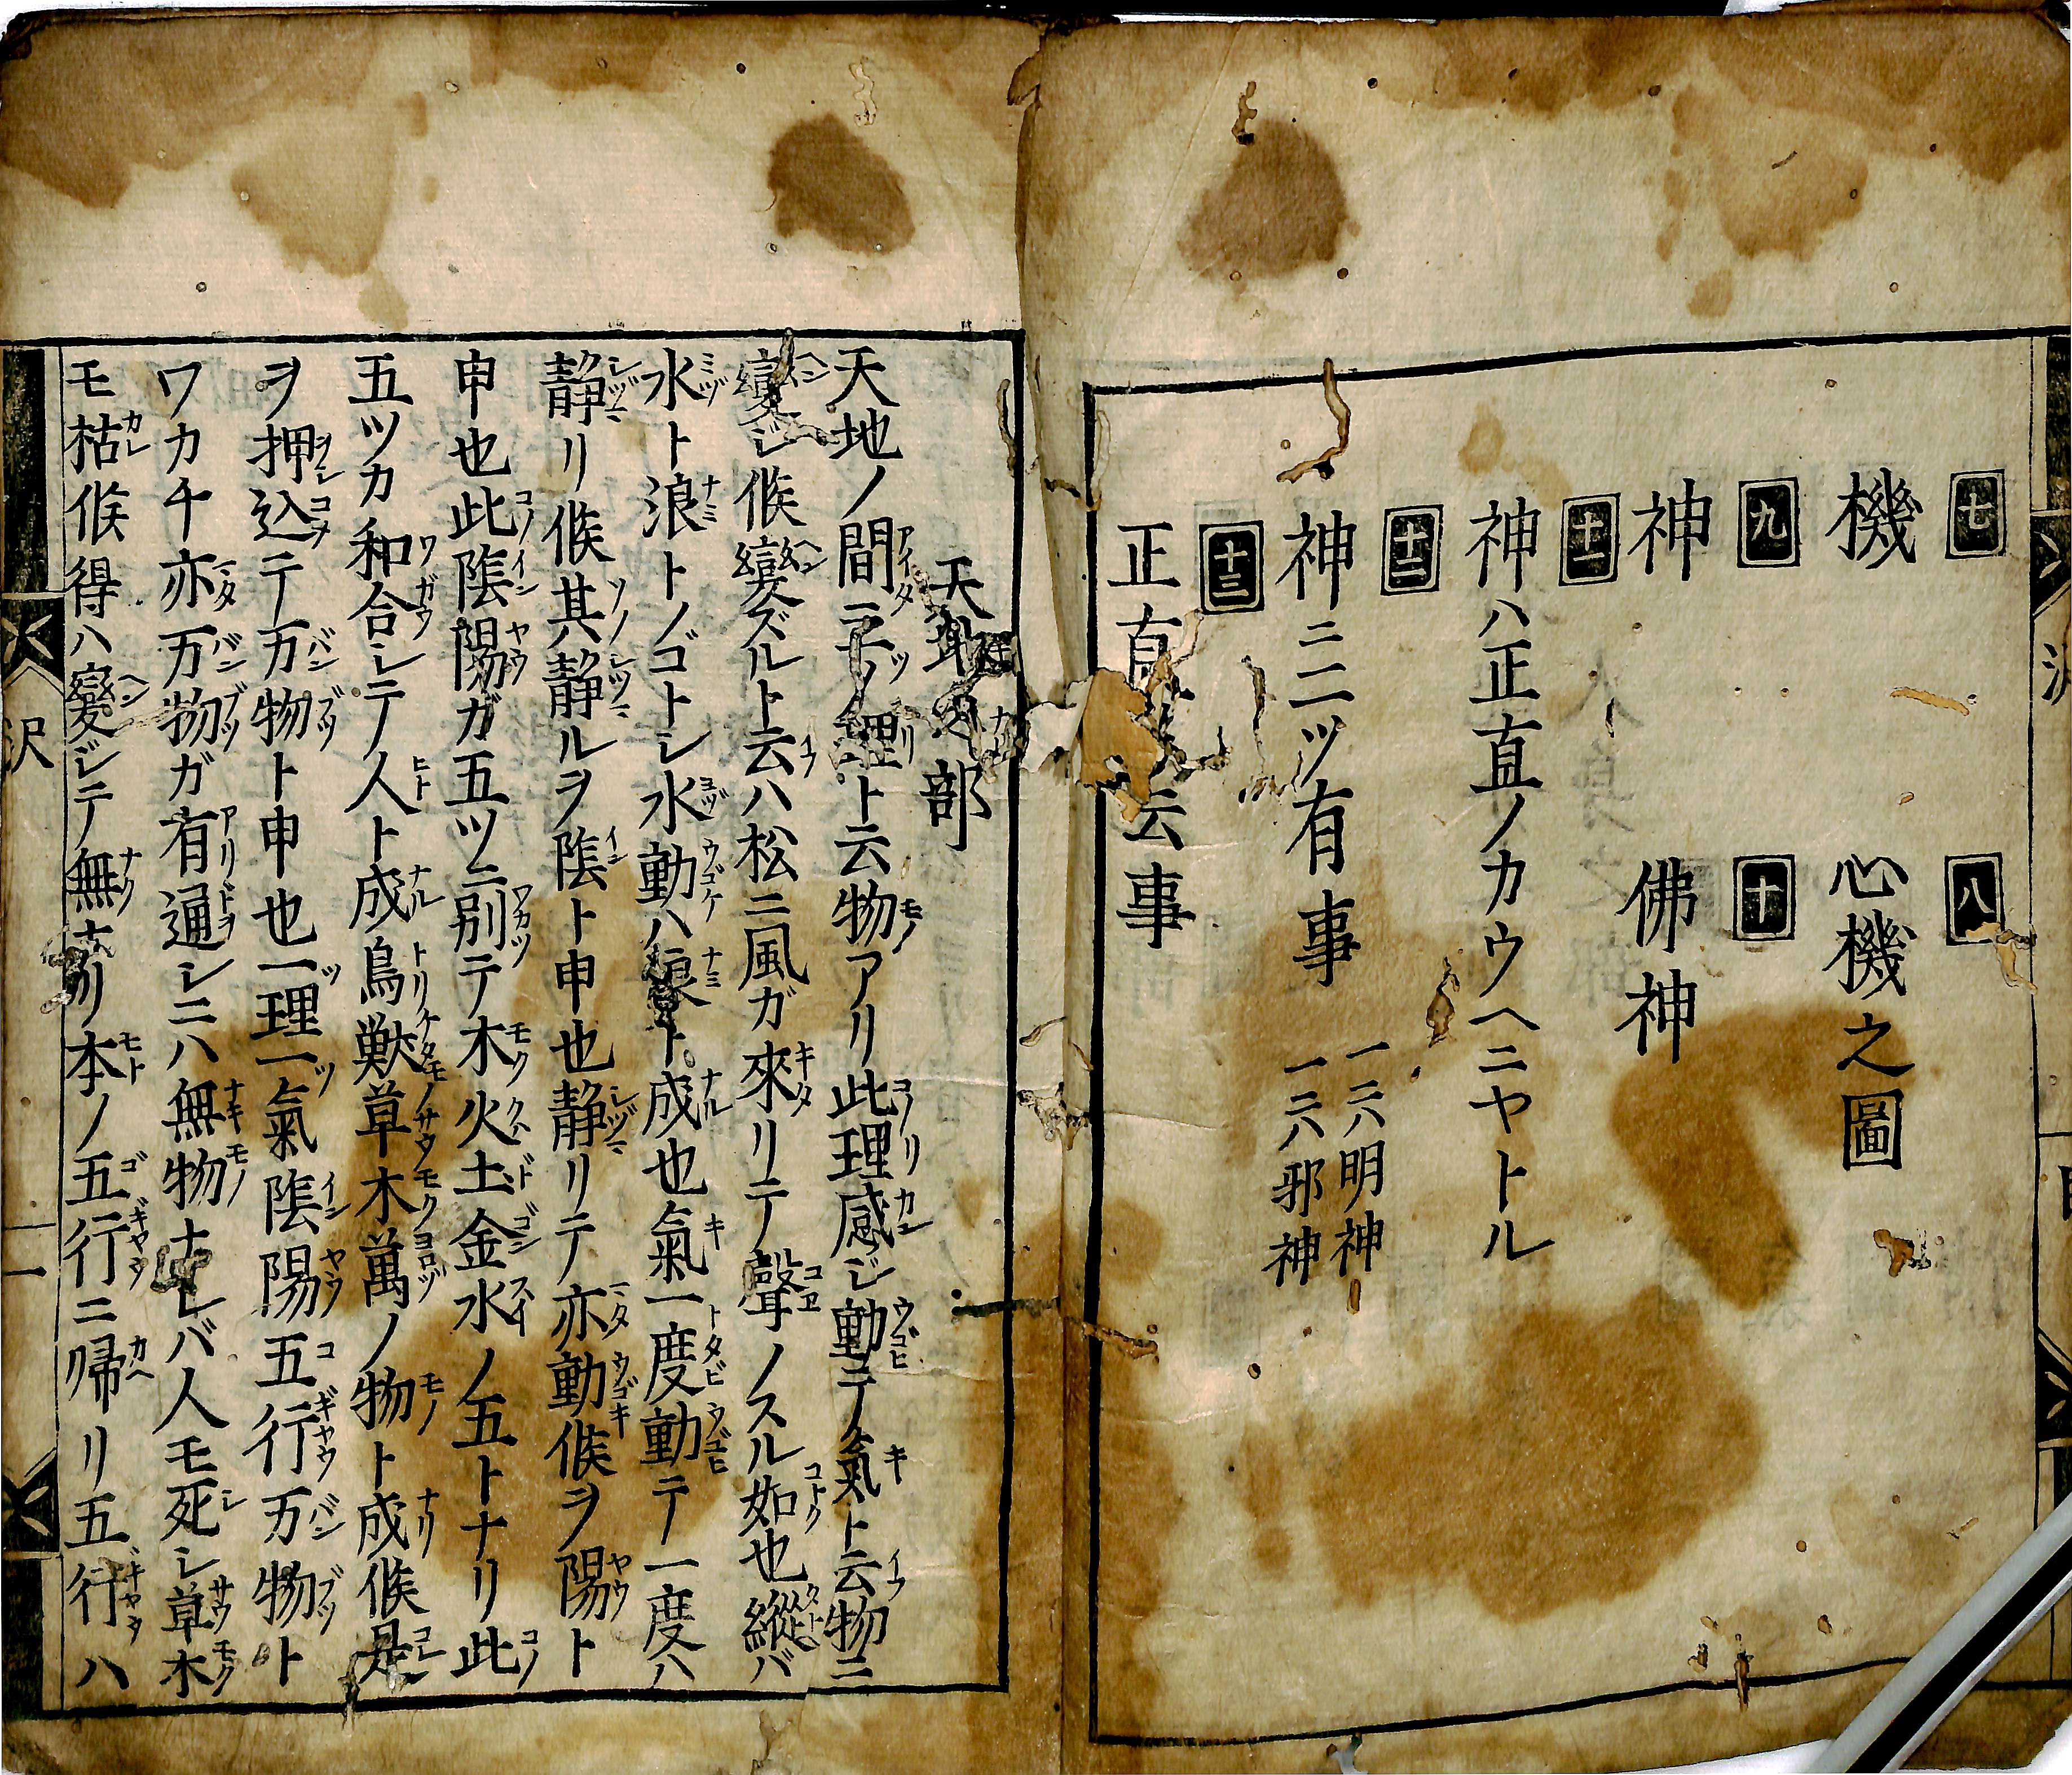 七　八
機　心機之圖
九　十
神　佛神
十一
神ハ正直ノカウヘニヤトル
十二
神ニ二ツ有事　一ニハ明神　一ニハ邪神
十三
正直云事
天地之部
天地ノ間ニ一ツノ理ト云物アリ此理感ジ動テ氣ト云物ニ
變ジ候變ズルト云ハ松ニ風ガ來リテ聲ノスル如也縱バ
水ト浪トノゴトシ水動ハ浪ト成也氣一度動テ一度ハ
静リ候其静ルヲ陰ト申也静リテ亦動候ヲ陽ト
申也此陰陽ガ五ツニ別テ木火土金水ノ五トナリ此
五ツカ和合シテ人ト成鳥獣草木萬ノ物ト成候是
ヲ押込テ万物ト申也一理一氣陰陽五行万物ト
ワカチ亦万物ガ有通シニハ無物ナレバ人モ死シ草木
モ枯候得ハ變ジテ無ナリ本ノ五行ニ帰リ五行ハ
沢
一